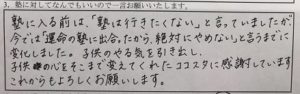 3. 塾に対してなんでもいいので一言お願いいたします。
塾に入る前は、「塾は行きたくない」と言っていましたが
今では「運命の塾に出会ったから、絶対にやめない」と言うまでに
変化しました。子供のやる気を引き出し、
子供の心をそこまで変えてくれたココスタに感謝しています
これからもよろしくお願いします。